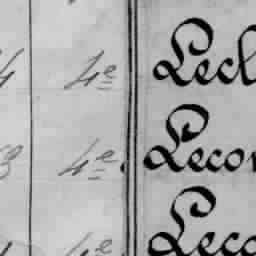 4e Lecl
4e Lecon
4e Leco